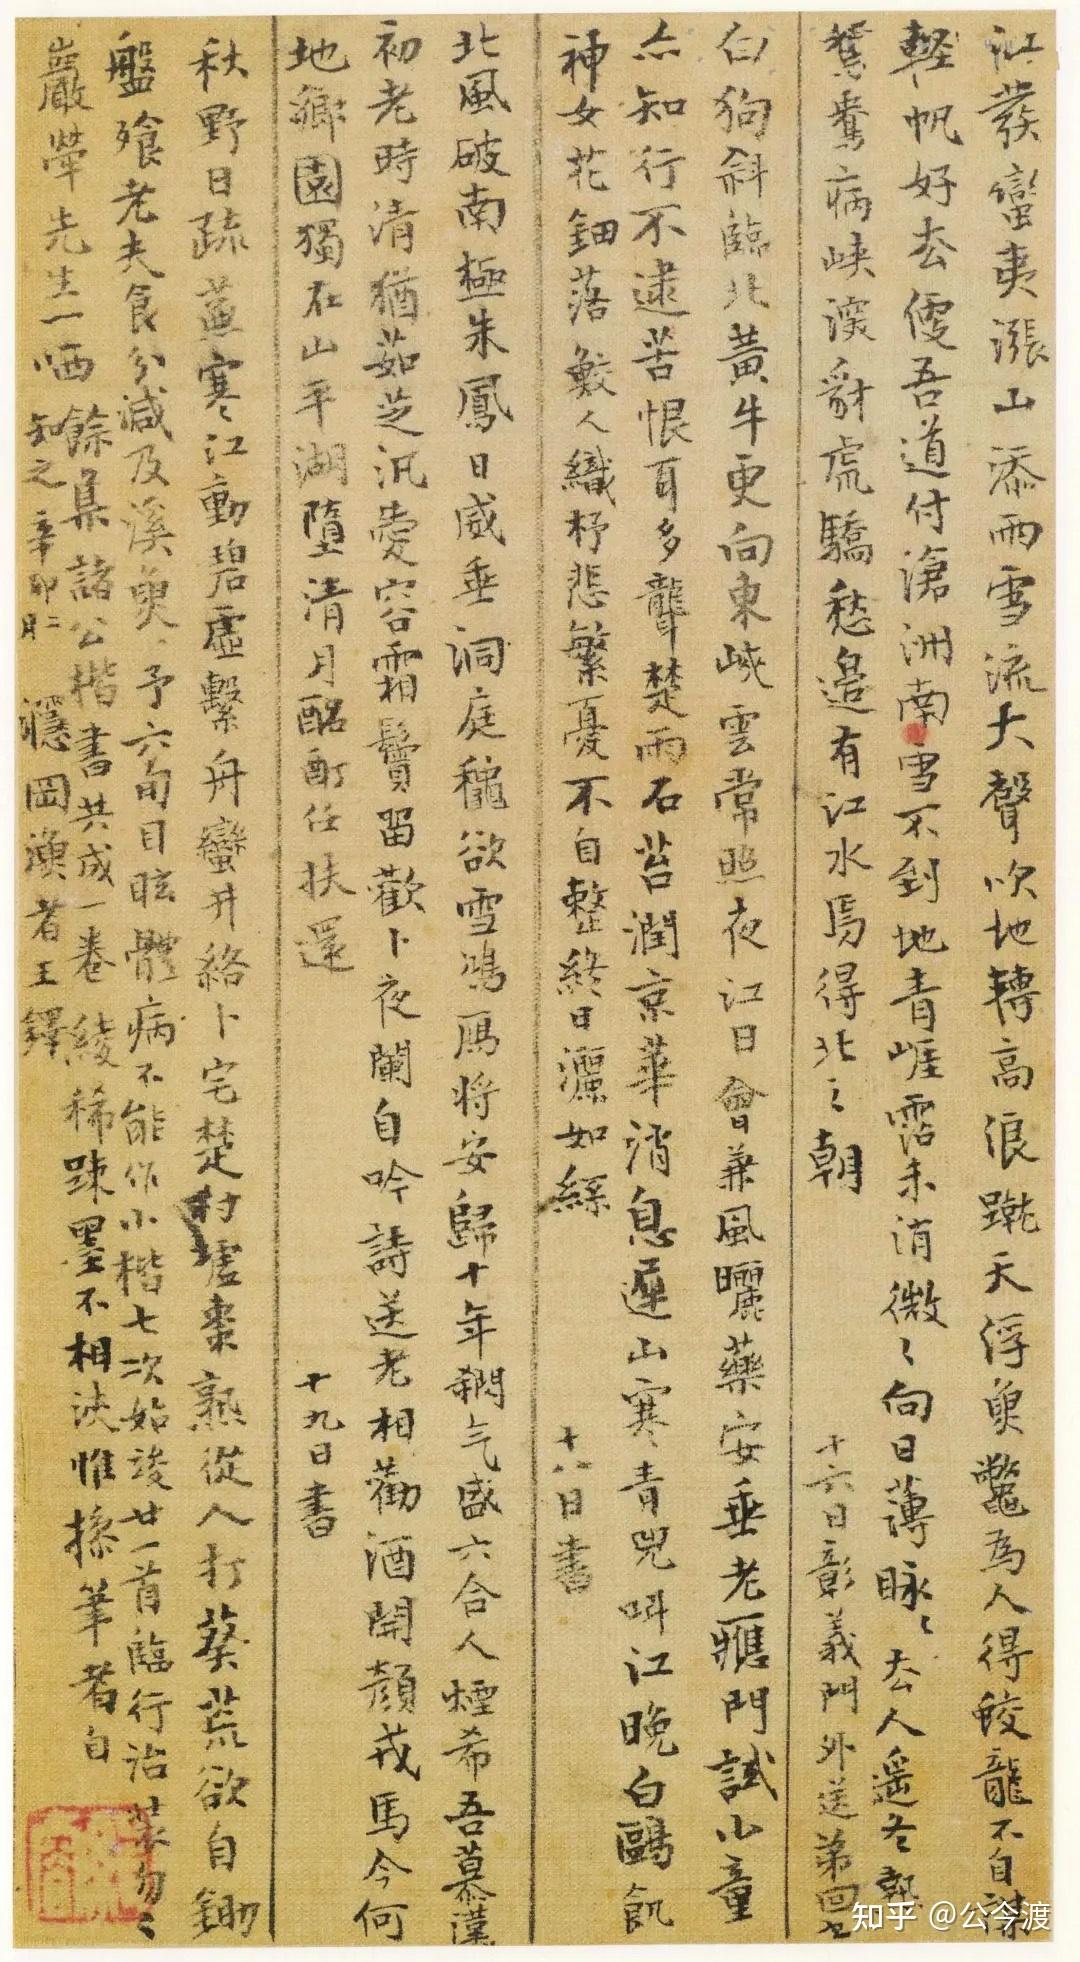 江發蠻夷漲山添雨雪流大聲吹地轉高浪蹴天浮魚鼈為人得蛟龍不自謀
輕帆好去便吾道付滄洲南雪不到地青崖霑未消微〻向日薄脉〻去人遥冬熱
鴛鴦病峽深豺虎驕愁邊有江水焉得北之朝 十六日彰義門外送弟回
白狗斜臨北黃牛更向東峽雲常照夜江日會兼風曬藥安垂老應門試小童
亦知行不逮苦恨耳多聾楚雨石苔潤京華消息遲山寒青兕叫江晚白鷗飢
神女花鈿落鮫人織杼悲繁憂不自整終日灑如絲 十八日書
北風破南極朱鳳日威垂洞庭秋欲雪鴻雁將安歸十年殺气盛六合人煙稀吾慕漢
初老時清猶茹芝汎愛容霜鬢留歡卜夜闌自吟詩送老相勸酒開顏戎馬今何
地鄉園獨在山平湖墮清月酩酊任扶還 十九日書
秋野日疏蕪寒江動碧虛繫舟蠻井絡卜宅楚村墟棗熟從人打葵荒欲自鋤
盤飧老夫食分減及溪魚〻予六旬目眩體病不能作小楷七次始竣廿一首臨行治裝匆〻
巖犖先生一哂 餘集諸公楷書共成一卷綾稀踈墨不相浹惟操筆者自
知之 辛卯二月 癮岡漁者王鐸
知乎 @公今渡